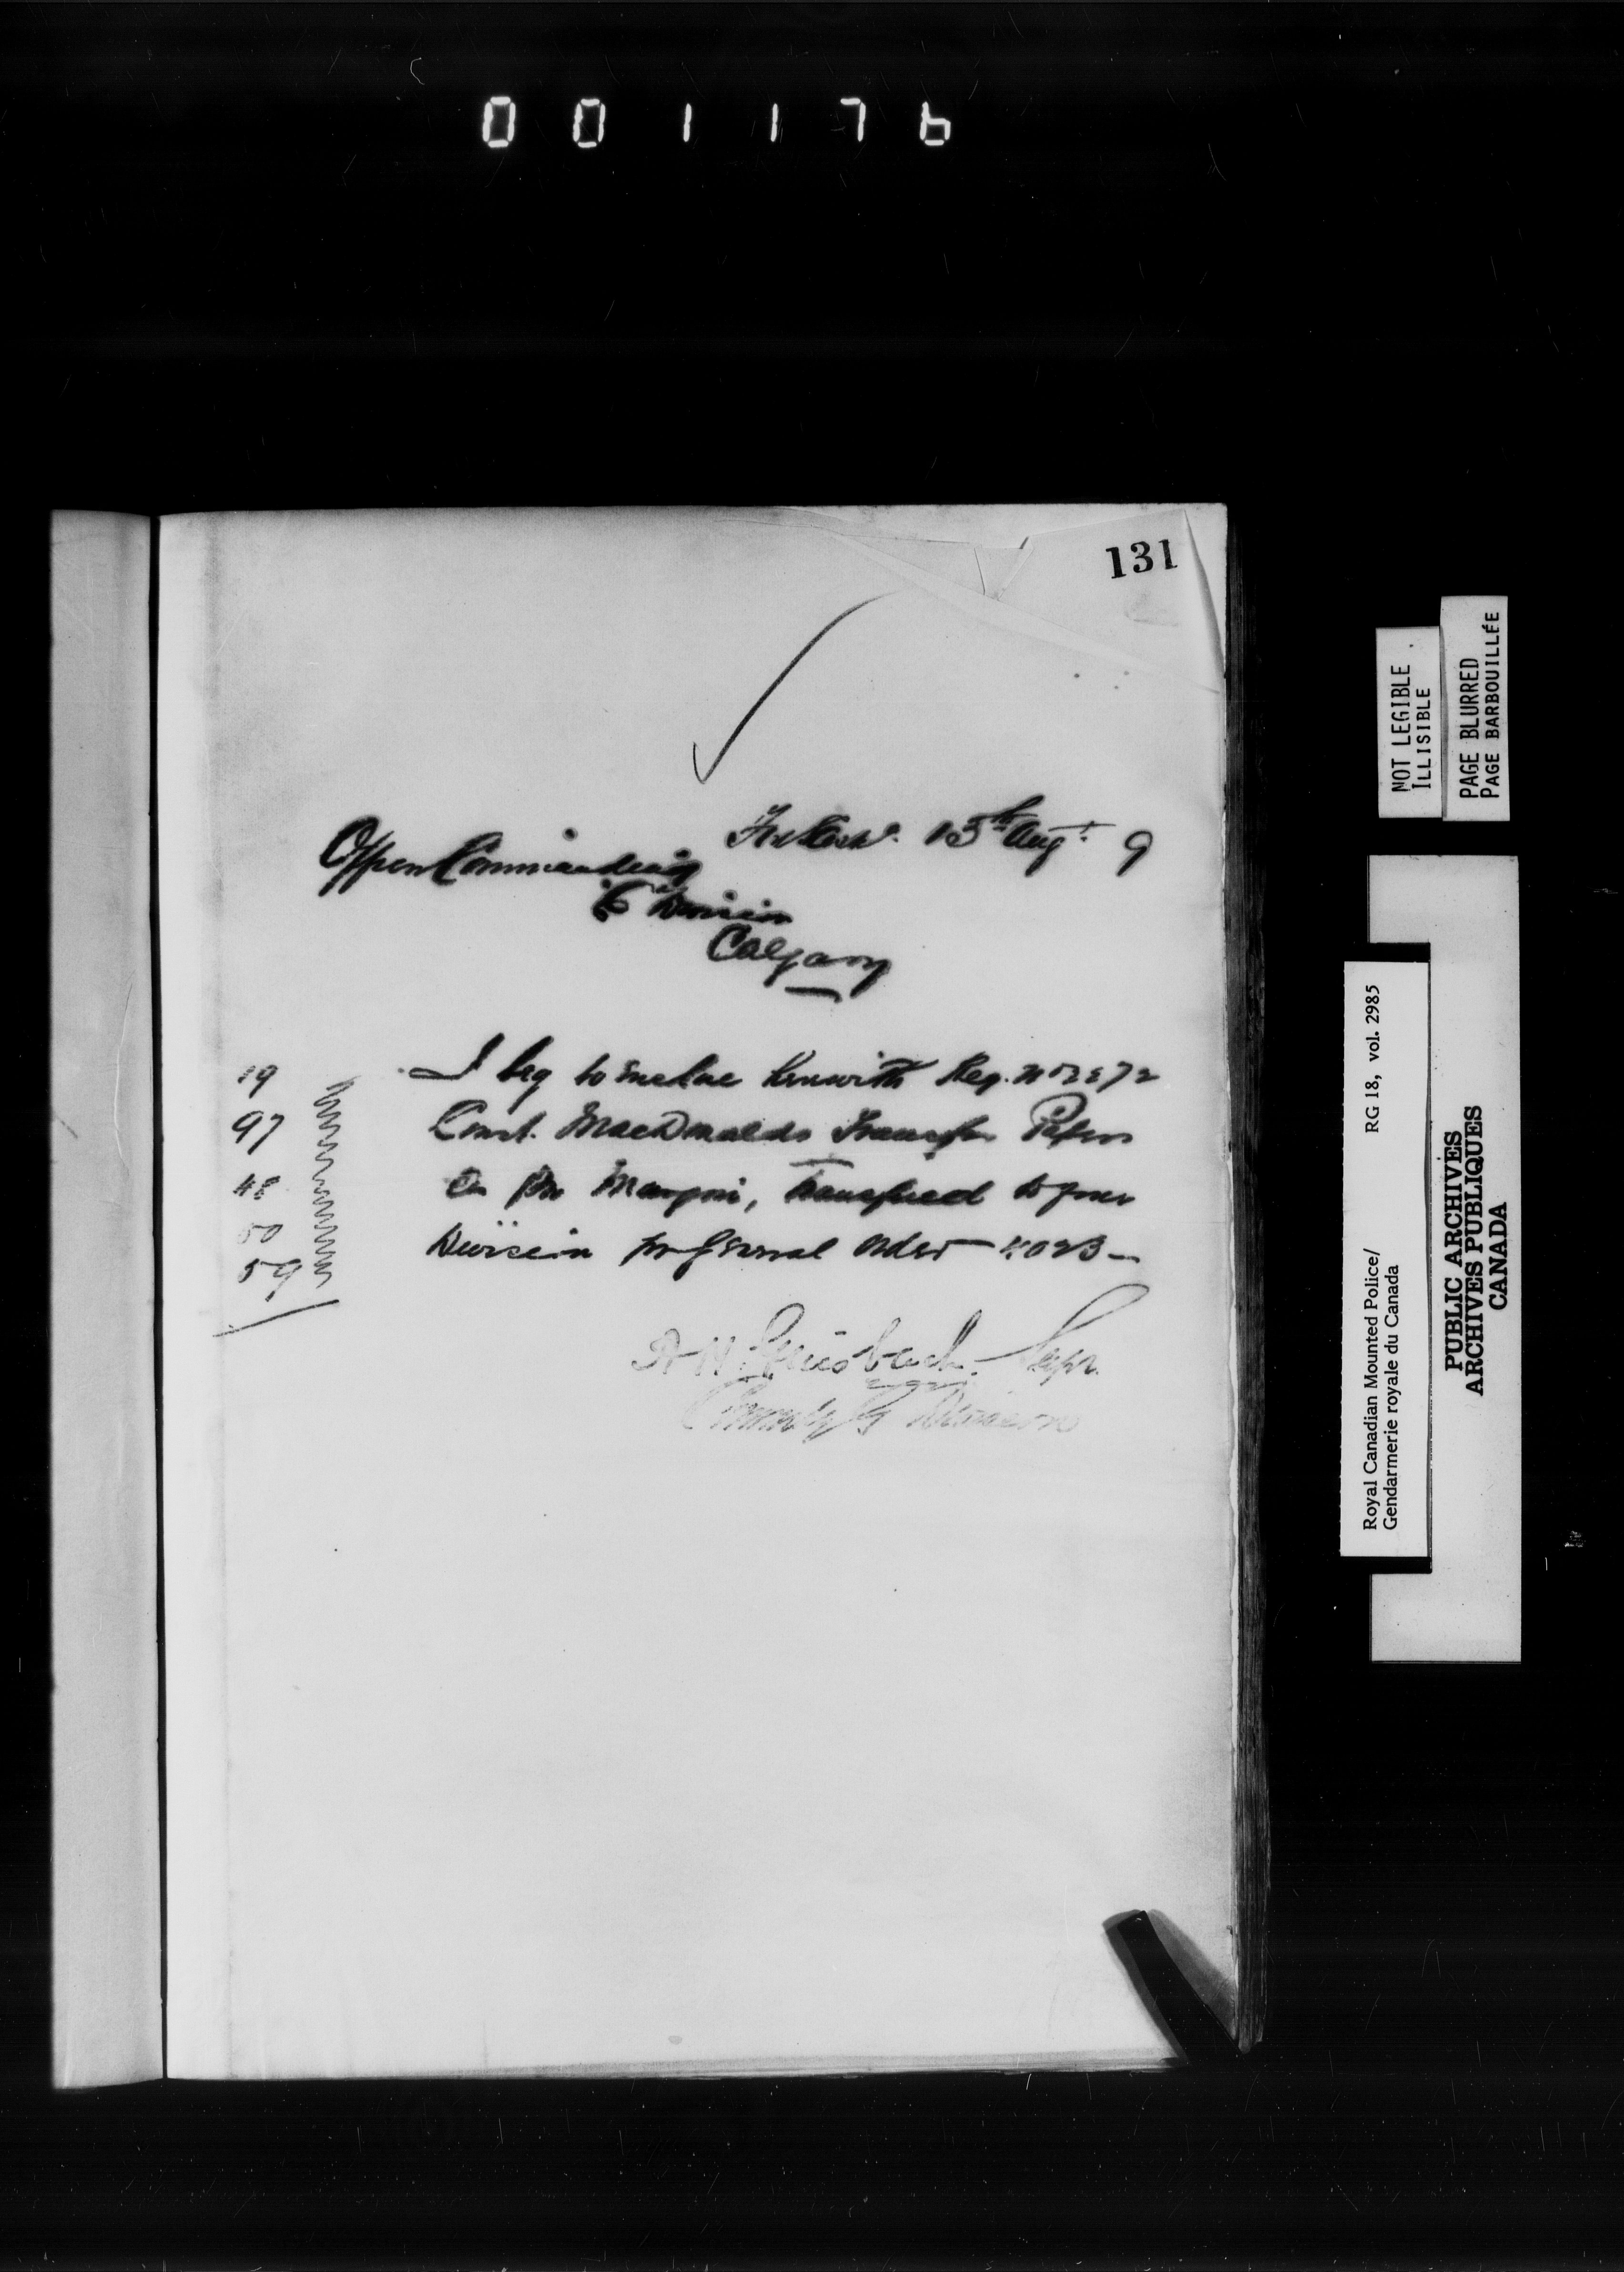 001176
131
Ft Sask. 13th Augt. 9
Officer Commanding
"E" Division
Calgary
I beg to enclose herewith Reg. No 2872
Const. MacDonalds Transfer Papers
as per Margin, transferred to your
Division per General Order 4023
19
97
48
50
59
A H Griesbach Supt.
Commdg G Division
NOT LEGIBLE
ILLISIBLE
PAGE BLURRED
PAGE BARBOUILLÉE
Royal Canadian Mounted Police/ RG 18, vol. 2985
Gendarmerie royale du Canada
PUBLIC ARCHIVES
ARCHIVES PUBLIQUES
CANADA